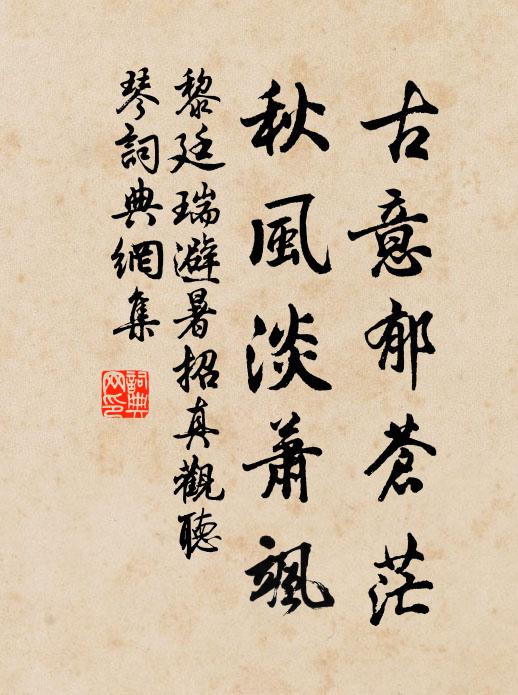 古意郁蒼茫
秋風淡蕭颯
黎廷瑞避暑招真觀聽
琴詞典網集
詞典
网印